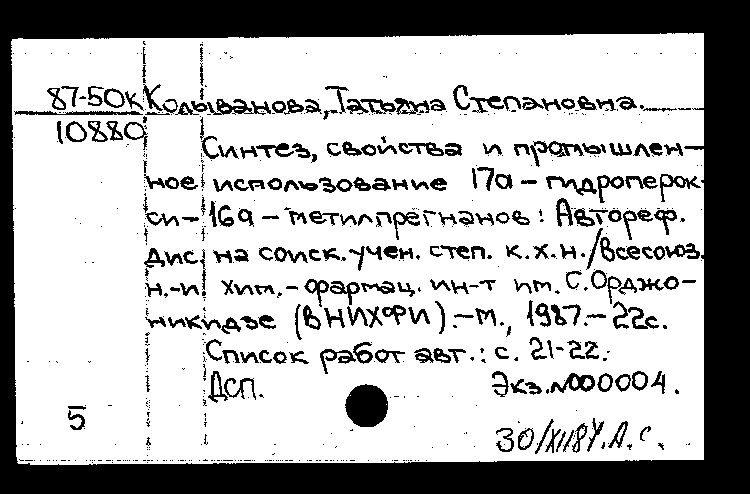 87-50к Колыванова, Татьяна Степановна.
10880
Синтез, свойства и промышлен-
ное использование 17а-гидроперок-
си-16а-метилпрегнанов: Автореф.
дис. на соиск. учен. степ. к.х.н. / Всесоюз.
н.-и. хим.-фармац. ин-т им. С. Орджо-
никидзе (ВНИХФИ).-М., 1987.-22с.
Список работ авт.: с. 21-22.
ДСП. Экз. №000004.
5
А.С.